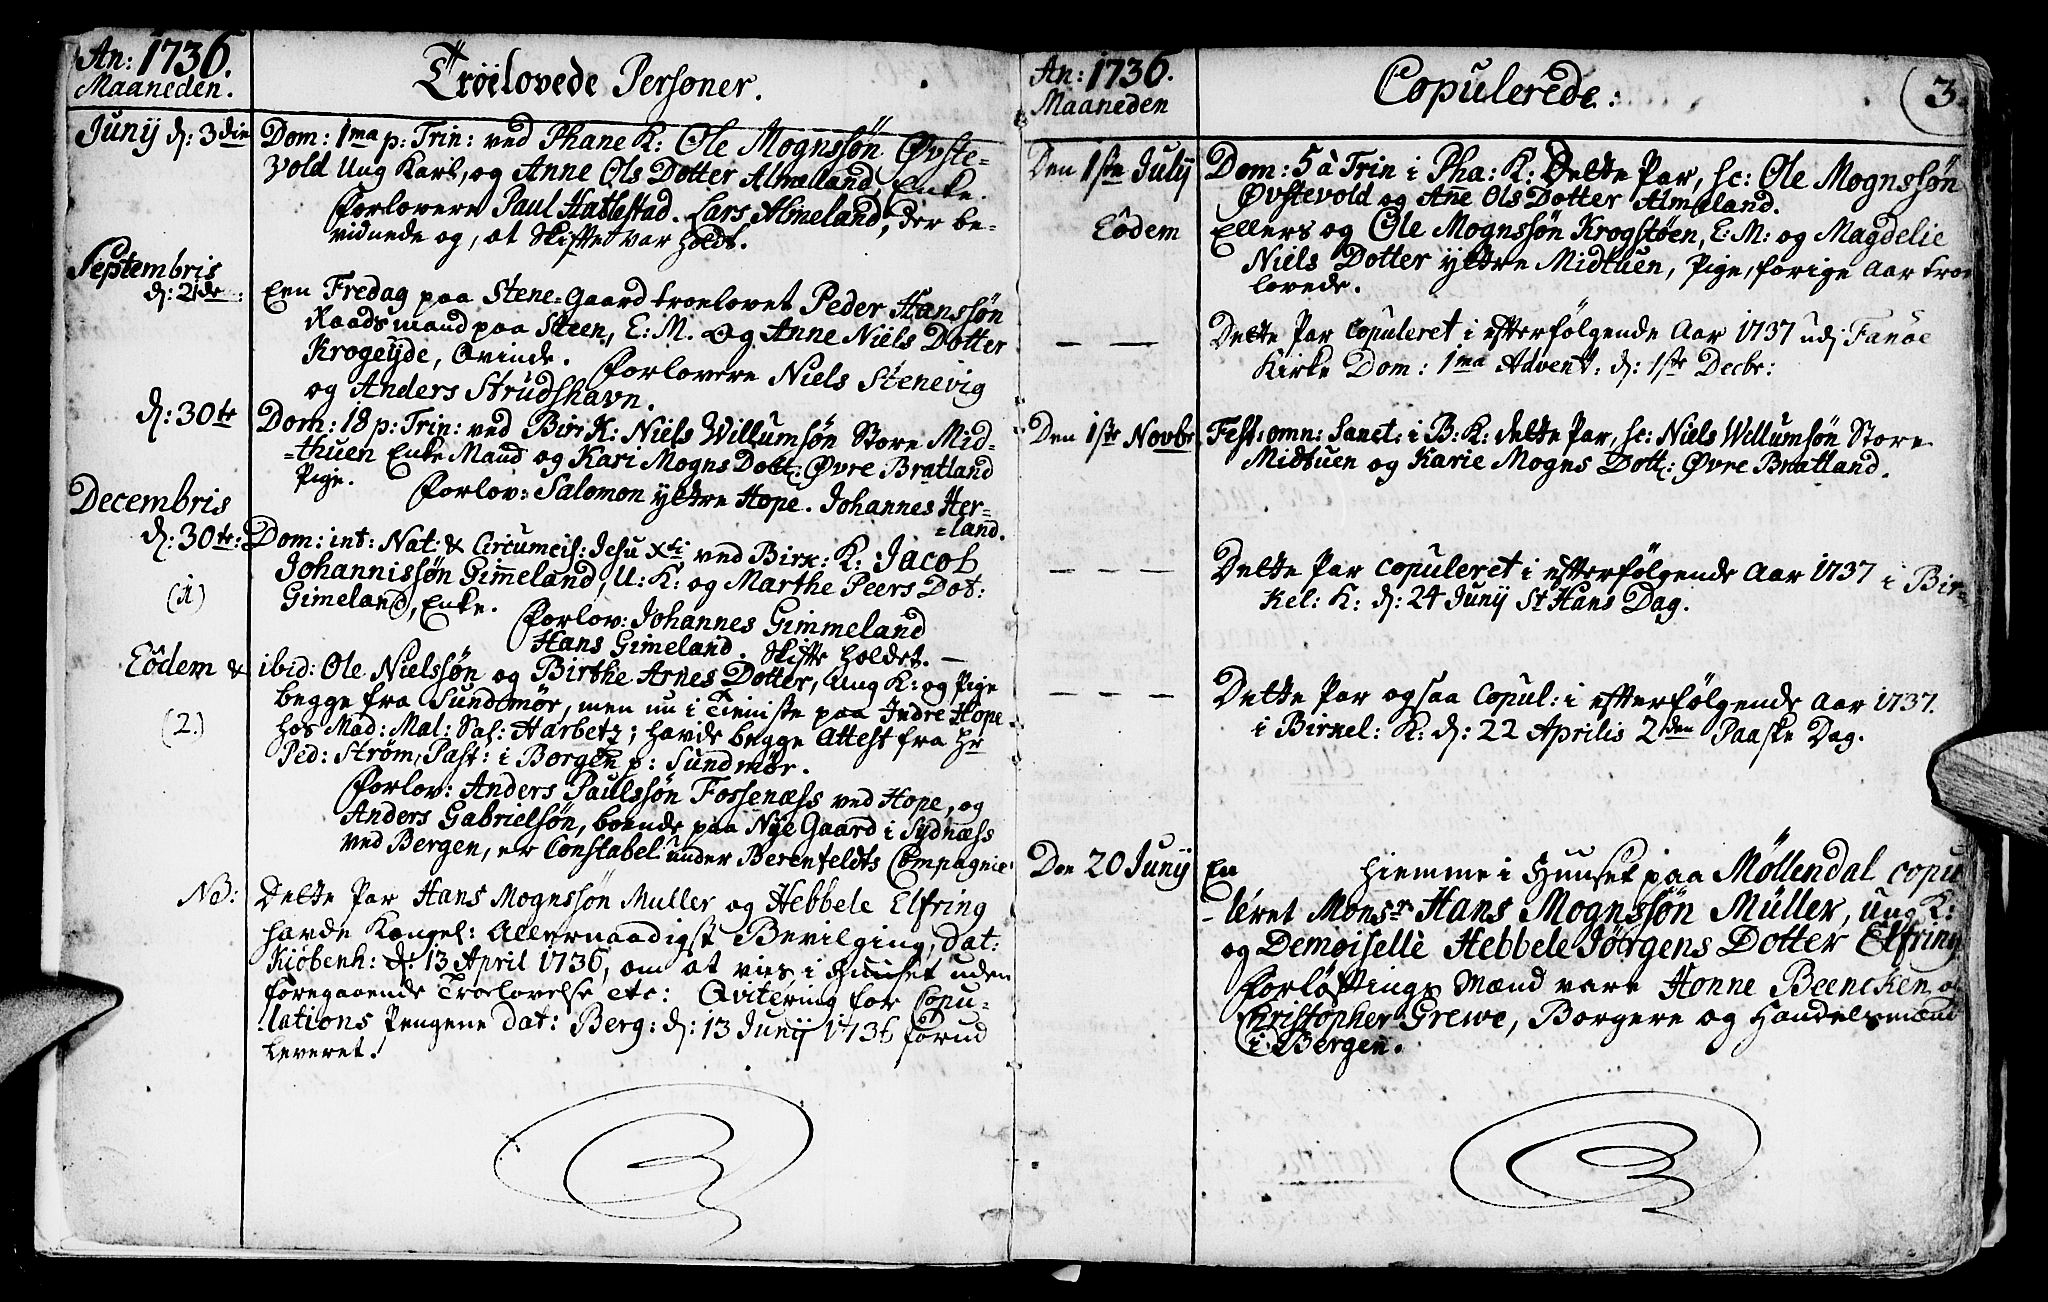 An: 1736.
Maaneden.
Troelovede Personer.
Junij d: 3die
Dom: 1ma p: Trin: ved Phane K: Ole Mognssøn Øvste-
vold Ung Karl, og Anne Ols Dotter Almeland, Enke.
Forlovere Paul Hattestad. Lars Almeland, der be-
vidnede og, at Skiftet var holdt.
Septembris
d: 21de:
Een Fredag paa Stene-Gaard troelovet Peder Hanssøn
Raadsmand paa Steen, E: M. og Anne Niels Dotter
Krogeyde, Qvinde. Forlovere Niels Stenevig
og Anders Strudshavn.
d: 30te
Dom: 18 p: Trin: ved Birk: Niels Willumsøn Store Mid-
=thuen Enke Mand og Kari Mogns Dott: Øvre Bratland
Pige. Forlov: Salomon yttre Hope. Johannes Her-
=land.
Decembris
d: 30te:
Dom: int: Nat: & Circumcis: Jesu Xti ved Birk: K: Jacob
Johannissøn Gimeland, U: K: og Marthe Peers Dot:
(1)
Gimeland, Enke. Forlov: Johannes Gimmeland
Hans Gimeland. Skifte holdet. —
Eôdem &
ibid: Ole Nielssøn og Birthe Arnes Dotter, Ung K: og Pige
begge fra Sundmør, men nu i Tieniste paa Indre Hope
(2.)
hos Mad: Mal: Sal: Harbetz; havde begge Attest fra Hr
Ped: Strøm, Past: i Borgen p: Sundmør.
Forlov: Anders Paulssøn Fossenæss ved Hope, og
Anders Gabrielsøn, boende paa Nye Gaard i Sydnæss
ved Bergen, er Constabel under Berenfeldts Compagnie
NB:
Dette Par Hans Mognssøn Muller og Hebbele Elfring
havde Kongel: Allernaadigst Bevilging, dat:
Kiøbenh: d: 13 April 1736, om at vies i Huuset uden
foregaaende Troelovelse etc: Qvitering for Copu-
-lations Pengene dat: Berg: d: 13 Junij 1736 forud
leveret.
An: 1736.
Maaneden
Copulerede:
3.
Den 1ste Julij
Dom: 5 à Trin i Pha: K: Dette Par, sc: Ole Mognssøn
Øvstevold og Anne Ols Dotter Almeland.
Eôdem
Ellers og Ole Mognssøn Krogstøen, E: M: og Magdelie
Niels Dotter yttre Midtuen, Pige, forige Aar troe
lovede.
— —
Dette Par Copuleret i efterfølgende Aar 1737 udj Fanøe
Kirke Dom: 1ma Advent: d: 1ste Decbr:
Den 1ste Novbr
Fest: omn: Sanct: i B: K: dette Par, sc: Niels Willumsøn Store
Midtuen og Karie Mogns Dott: Øvre Bratland.
— — —
Dette Par copuleret i efterfølgende Aar 1737 i Bir-
kel: K: d: 24 Junij St Hans Dag.
— — —
Dette Par ogsaa Copul: i efterfølgende Aar 1737.
i Birkel: K: d: 22 Aprilis 2den Paaske Dag.
Den 20 Junij
En hiemme i Huuset paa Møllendal copu
-leret Monsr Hans Mognssøn Müller, ung K:
og Demoiselle Hebbele Jörgens Dotter Elfring
Forløftings Mænd vare Honne Beencken, o
Christopher Grewe, Borgere og Handelsmænd
i Bergen.